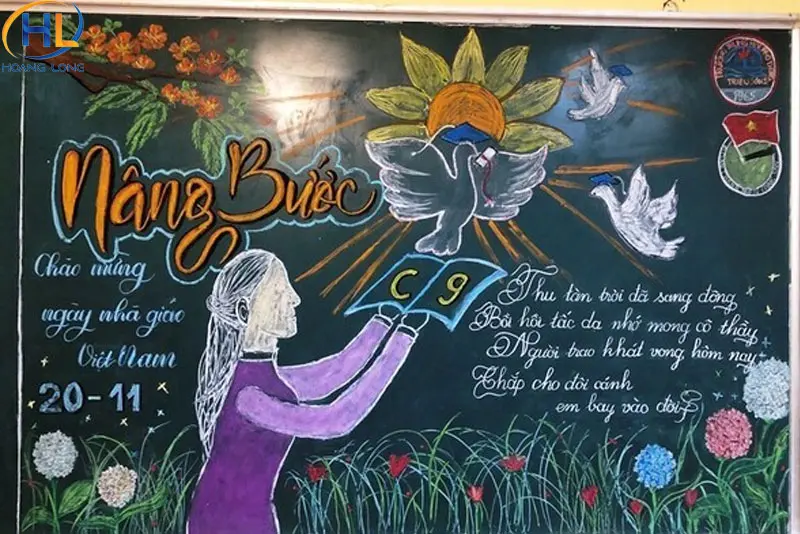 HL
HOANG LONG
Nâng Bước
Chào mừng
ngày nhà giáo
Việt Nam
20-11
C 9
TRIỆU SƠN
1965
Thu tàn trời đã sang đông
Bồi hồi tấc dạ nhớ mong cô thầy
Người trao khát vọng hôm nay
Chắp cho đôi cánh
em bay vào đời